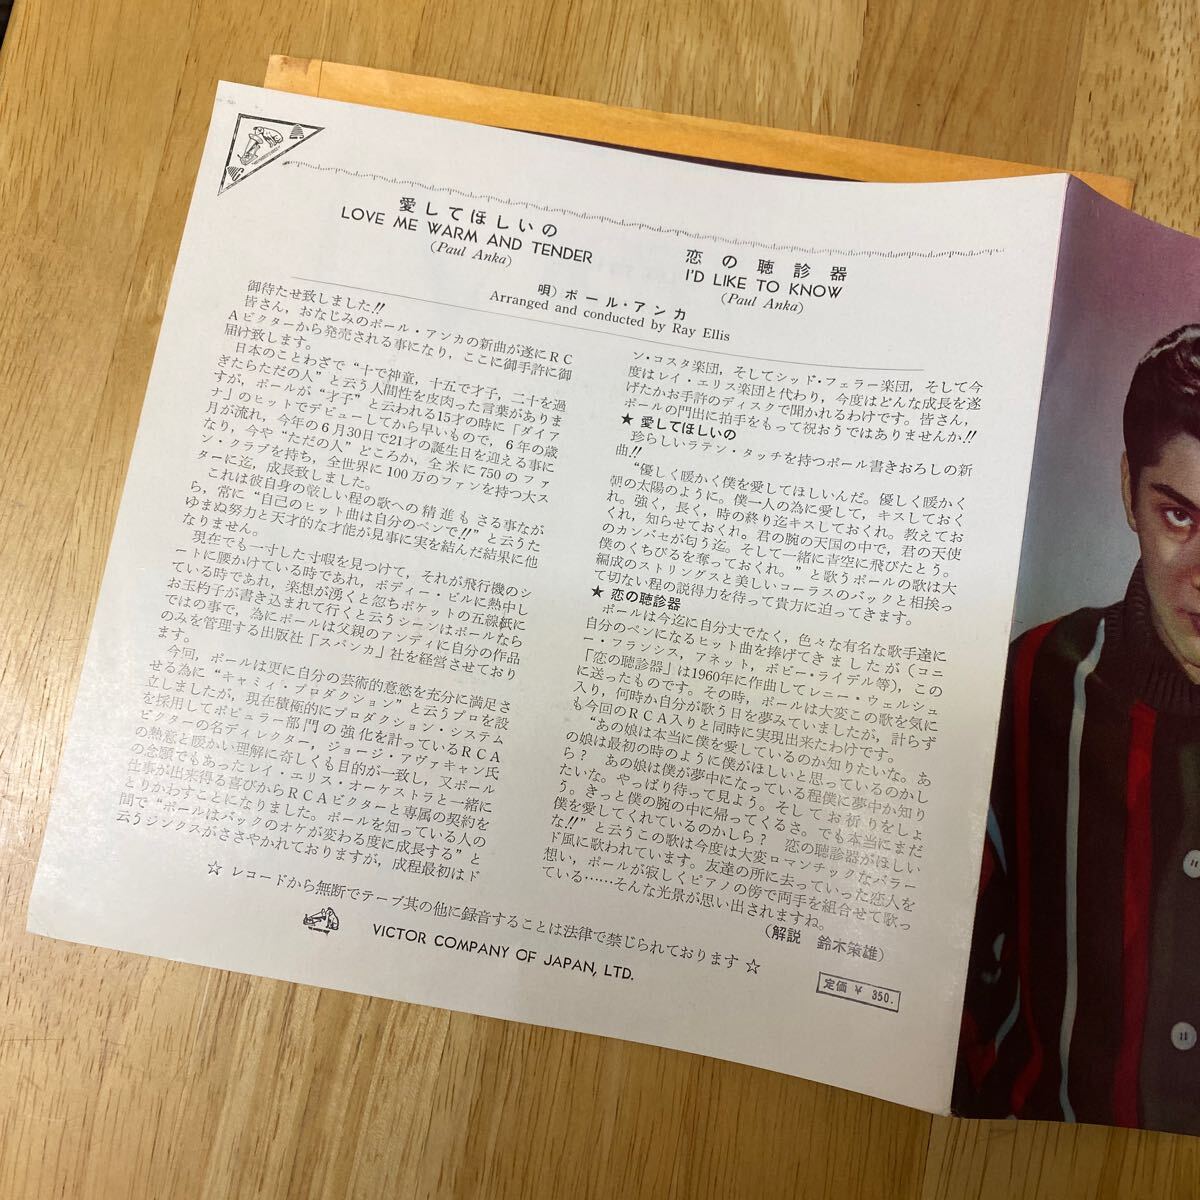 愛してほしいの
LOVE ME WARM AND TENDER
(Paul Anka)
恋の聴診器
I'D LIKE TO KNOW
(Paul Anka)
唄) ポール・アンカ
Arranged and conducted by Ray Ellis
御待たせ致しました!!
皆さん，おなじみのポール・アンカの新曲が遂にＲＣ
Ａビクターから発売される事になり，ここに御手許に御
届け致します。
日本のことわざで“十で神童，十五で才子，二十を過
ぎたらただの人”と云う人間性を皮肉った言葉がありま
すが，ポールが“才子”と云われる15才の時に「ダイア
ナ」のヒットでデビューしてから早いもので，６年の歳
月が流れ，今年の６月30日で21才の誕生日を迎える事に
なり，今や“ただの人”どころか，全米に750のファ
ン・クラブを持ち，全世界に100万のファンを持つ大ス
ターに迄，成長致しました。
これは彼自身の厳しい程の歌への精進もさる事なが
ら，常に“自己のヒット曲は自分のペンで!!”と云うた
ゆまぬ努力と天才的な才能が見事に実を結んだ結果に他
なりません。
現在でも一寸した寸暇を見つけて，それが飛行機のシ
ートに腰かけている時であれ，ボディー・ビルに熱中し
ている時であれ，楽想が湧くと忽ちポケットの五線紙に
お玉杓子が書き込まれて行くと云うシーンはポールなら
ではの事で，為にポールは父親のアンディに自分の作品
のみを管理する出版社「スパンカ」社を経営させており
ます。
今回，ポールは更に自分の芸術的意慾を充分に満足さ
せる為に“キャミィ・プロダクション”と云うプロを設
立しましたが，現在積極的にプロダクション・システム
を採用してポピュラー部門の強化を計っているＲＣＡ
ビクターの名ディレクター，ジョージ・アヴァキャン氏
の熱意と暖かい理解に奇しくも目的が一致し，又ポール
の念願でもあったレイ・エリス・オーケストラと一緒に
仕事が出来得る喜びからＲＣＡビクターと専属の契約を
とりかわすことになりました。ポールを知っている人の
間で“ポールはバックのオケが変わる度に成長する”と
云うジンクスがささやかれておりますが，成程最初はド
ン・コスタ楽団，そしてシッド・フェラー楽団，そして今
度はレイ・エリス楽団と代わり，今度はどんな成長を遂
げたかお手許のディスクで聞かれるわけです。皆さん，
ポールの門出に拍手をもって祝おうではありませんか!!
★ 愛してほしいの
珍らしいラテン・タッチを持つポール書きおろしの新
曲!!
“優しく暖かく僕を愛してほしいんだ。優しく暖かく
朝の太陽のように。僕一人の為に愛して，キスしておく
れ。強く，長く，時の終り迄キスしておくれ。教えてお
くれ，知らせておくれ。君の腕の天国の中で，君の天使
のカンバセが匂う迄。そして一緒に青空に飛びたとう。
僕のくちびるを奪っておくれ。”と歌うポールの歌は大
編成のストリングスと美しいコーラスのバックと相挨っ
て切ない程の説得力を待って貴方に迫ってきます。
★ 恋の聴診器
ポールは今迄に自分丈でなく，色々な有名な歌手達に
自分のペンになるヒット曲を捧げてきましたが（コニ
ー・フランシス，アネット，ボビー・ライデル等），この
「恋の聴診器」は1960年に作曲してレニー・ウェルシュ
に送ったものです。その時，ポールは大変この歌を気に
入り，何時か自分が歌う日を夢みていましたが，計らず
も今回のＲＣＡ入りと同時に実現出来たわけです。
“あの娘は本当に僕を愛しているのか知りたいな。あ
の娘は最初の時のように僕がほしいと思っているのかし
ら？　あの娘は僕が夢中になっている程僕に夢中か知り
たいな。やっぱり待って見よう。そしてお祈りをしょ
う。きっと僕の腕の中に帰ってくるさ。でも本当にまだ
僕を愛してくれているのかしら？　恋の聴診器がほしい
な!!”と云うこの歌は今度は大変ロマンチックなバラー
ド風に歌われています。友達の所に去っていった恋人を
想い，ポールが寂しくピアノの傍で両手を組合せて歌っ
ている……そんな光景が思い出されますね。
(解説　鈴木策雄)
☆ レコードから無断でテープ其の他に録音することは法律で禁じられております ☆
VICTOR COMPANY OF JAPAN, LTD.
定価 ¥ 350.